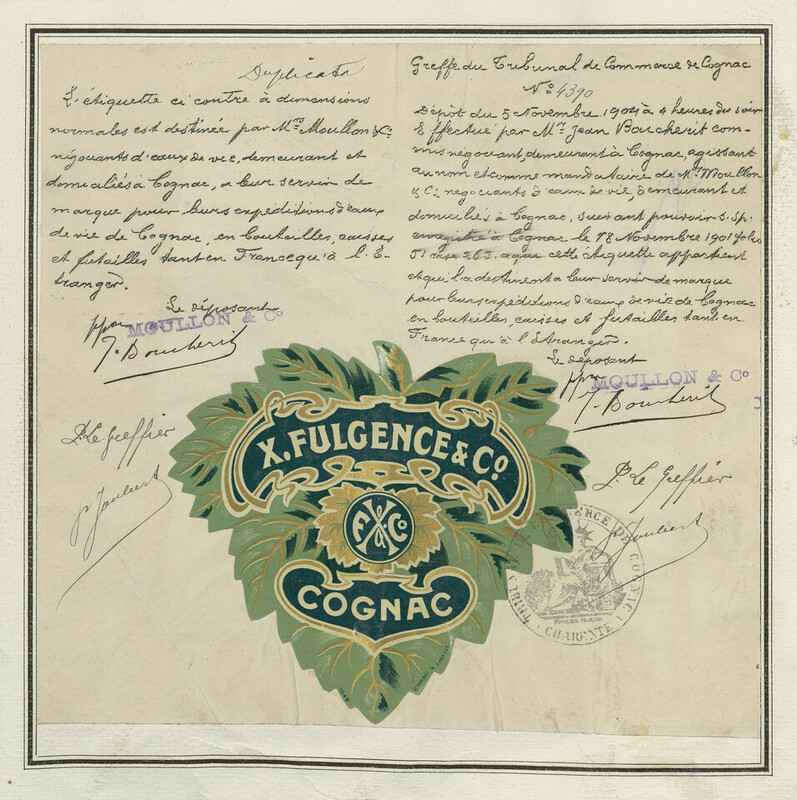 Duplicata
L'étiquette ci contre à dimensions
normales est destinée par Mrs Moullon & Co
négociants d'eaux de vie, demeurant et
domiciliés à Cognac, a leur servir de
marque pour leurs expéditions d'eaux
de vie de Cognac, en bouteilles, caisses
et futailles tant en France qu'à l'É-
tranger.
Le déposant
ppon MOULLON & Co
J. Boucherit
P. Le Greffier
Greffe du Tribunal de Commerce de Cognac
No 4390
Dépôt du 5 Novembre 1901 à 4 heures du soir
Effectué par Mr Jean Boucherit com-
mis négociant, demeurant à Cognac, agissant
au nom et comme mandataire de Mrs Moullon
& Co négociants d'eaux de vie, demeurant et
domiciliés à Cognac, suivant pouvoir s. sp.
enregistré à Cognac le 18 Novembre 1901 folio
51 case a que cette étiquette appartient
et qu'il a destinent a leur servir de marque
pour leurs expéditions d'eaux de vie de Cognac
en bouteilles, caisses et futailles tant en
France qu'à l'étranger.
Le déposant
ppon MOULLON & Co
J. Boucherit
P. Le Greffier
X. FULGENCE & Co
F & Co
COGNAC
TRIBUNAL DE COMMERCE DE COGNAC
CHARENTE